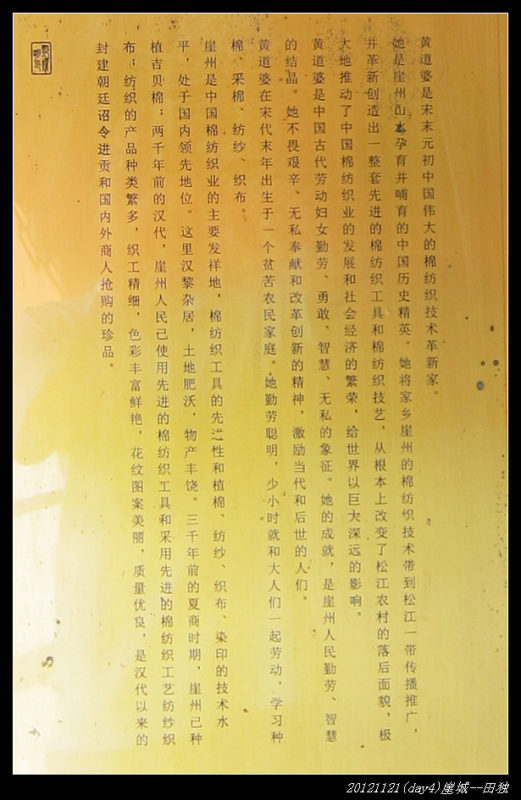 黄道婆是宋末元初中国伟大的棉纺织技术革新家。
她是崖州山水孕育并哺育的中国历史精英。她将家乡崖州的棉纺织技术带到松江一带传播推广，
并革新创造出一整套先进的棉纺织工具和棉纺织技艺，从根本上改变了松江农村的落后面貌，极
大地推动了中国棉纺织业的发展和社会经济的繁荣，给世界以巨大深远的影响。
黄道婆是中国古代劳动妇女勤劳、勇敢、智慧、无私的象征。她的成就，是崖州人民勤劳、智慧
的结晶。她不畏艰辛、无私奉献和改革创新的精神，激励当代和后世的人们。
黄道婆在宋代末年出生于一个贫苦农民家庭。她勤劳聪明，少小时就和大人们一起劳动，学习种
棉、采棉、纺纱、织布。
崖州是中国棉纺织业的主要发祥地，棉纺织工具的先进性和植棉、纺纱、织布、染印的技术水
平，处于国内领先地位。这里汉黎杂居，土地肥沃，物产丰饶。三千年前的夏商时期，崖州已种
植吉贝棉；两千年前的汉代，崖州人民已使用先进的棉纺织工具和采用先进的棉纺织工艺纺纱织
布；纺织的产品种类繁多，织工精细，色彩丰富鲜艳，花纹图案美丽，质量优良，是汉代以来的
封建朝廷诏令进贡和国内外商人抢购的珍品。
20121121(day4)崖城--田独